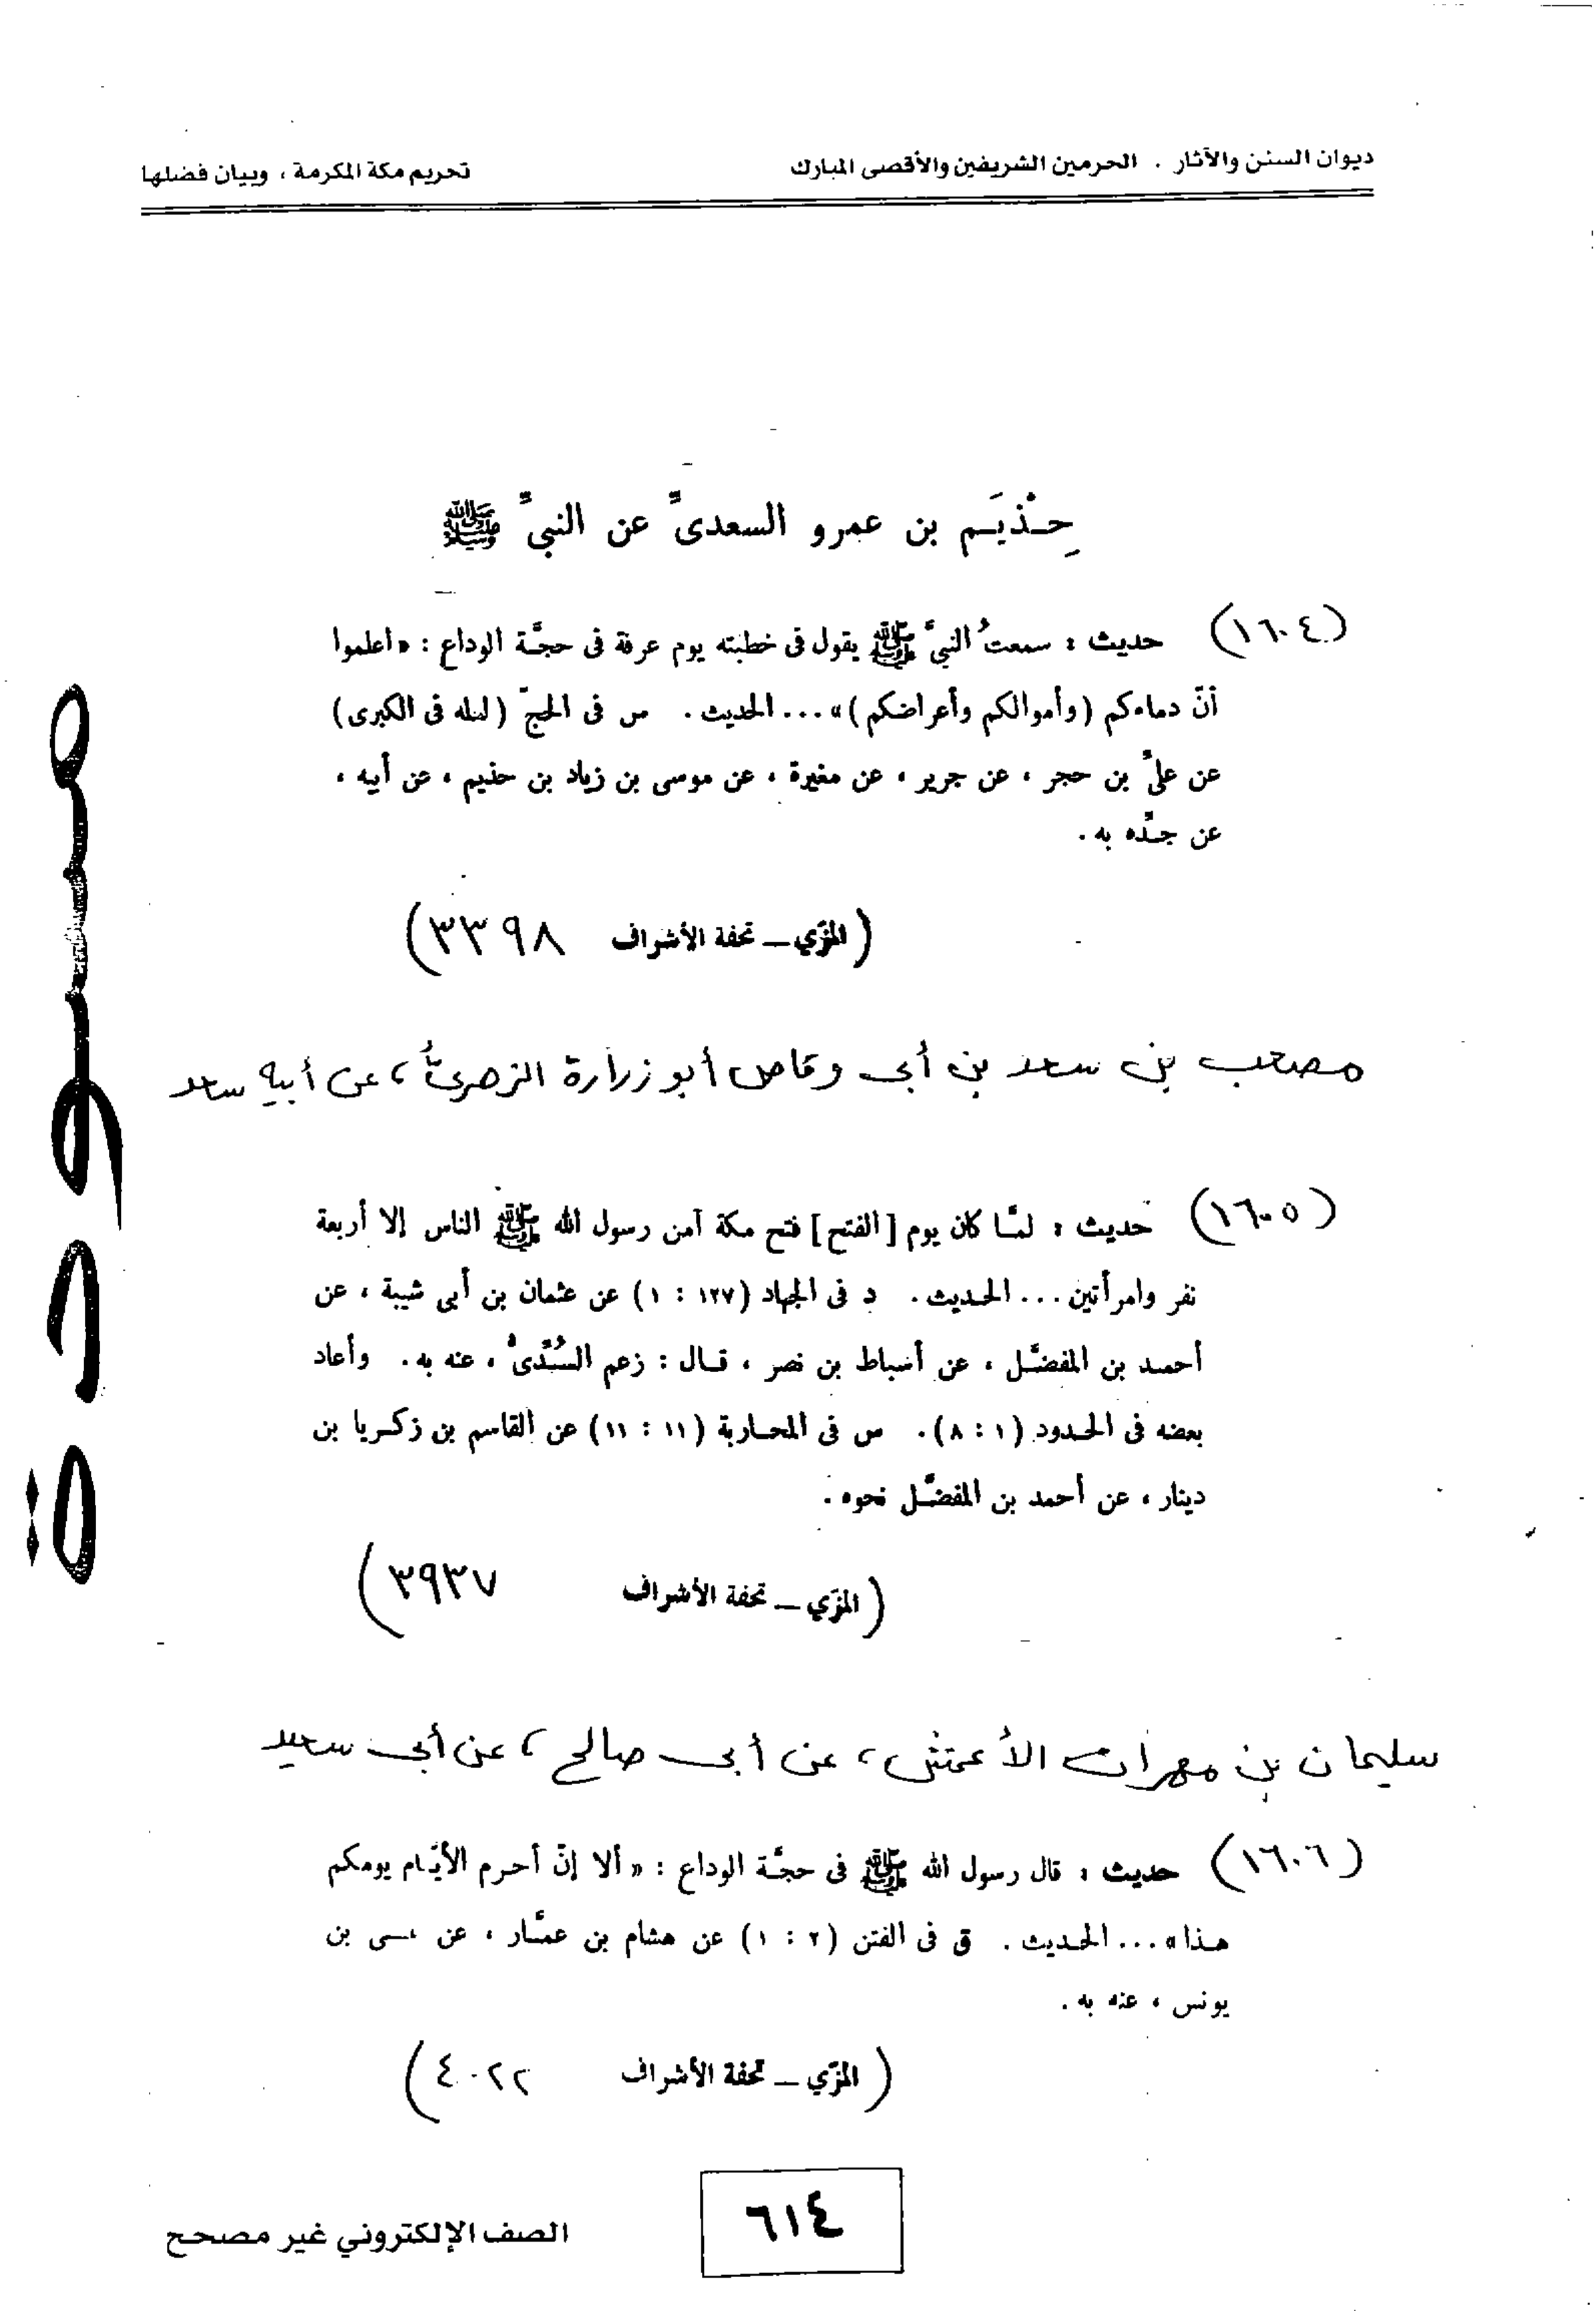 ديوان السنن والآثار . الحرمين الشريفين والأقصى المبارك
تحريم مكة المكرمة ، وبيان فضلها
حِـذْيَـم بن عمرو السعدىّ عن النبىّ ﷺ
(١٦٠٤) حديث : سمعتُ النبىَّ ﷺ يقول فى خطبته يوم عرفة فى حجّة الوداع : «اعلموا
أنّ دماءكم (وأموالكم وأعراضكم)» ... الحديث . س فى الحجّ (لعله فى الكبرى)
عن علىّ بن حجر ، عن جرير ، عن مغيرة ، عن موسى بن زياد بن حذيم ، عن أبيه ،
عن جدّه به .
(المزّي – تحفة الأشراف ٣٣٩٨)
مصعب بن سعد بن أبى وقاص أبو زرارة الزهرىّ ، عن أبيه سعد
(١٦٠٥) حديث : لمّا كان يوم [الفتح] فتح مكة آمن رسول الله ﷺ الناس إلا أربعة
نفر وامرأتين ... الحديث . د فى الجهاد (١٢٧ : ١) عن عثمان بن أبى شيبة ، عن
أحمد بن المفضّل ، عن أسباط بن نصر ، قال : زعم السُّدّىّ ، عنه به . وأعاد
بعضه فى الحدود (١ : ٨) . س فى المحاربة (١١ : ١١) عن القاسم بن زكريا بن
دينار ، عن أحمد بن المفضّل نحوه .
(المزّي – تحفة الأشراف ٣٩٣٧)
سليمان بن مهران الأعمش ، عن أبى صالح ، عن أبى سعيد
(١٦٠٦) حديث : قال رسول الله ﷺ فى حجّة الوداع : «ألا إنّ أحرم الأيّام يومكم
هذا» ... الحديث . ق فى الفتن (٢ : ١) عن هشام بن عمّار ، عن عيسى بن
يونس ، عنه به .
(المزّي – تحفة الأشراف ٤٠٢٢)
٦١٤
الصف الإلكتروني غير مصحح
مسودة